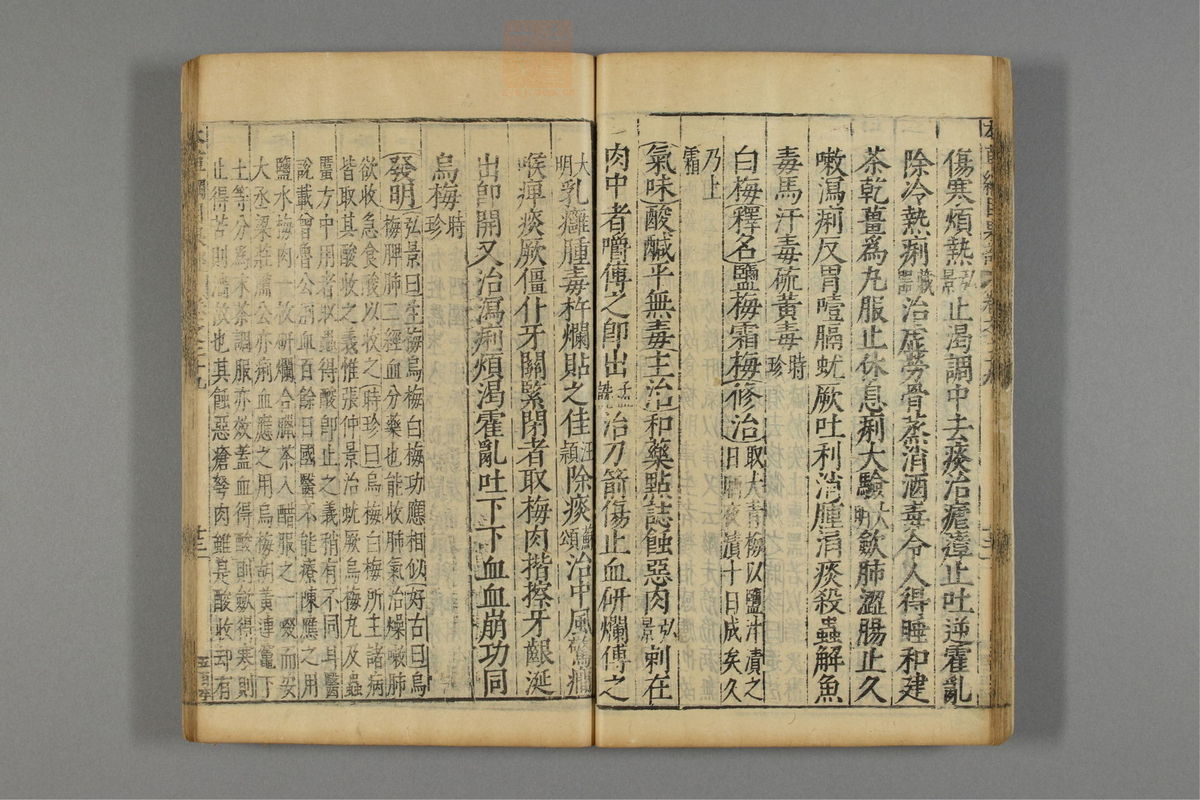 傷寒煩熱弘景止渴調中去痰治瘧瘴止吐逆霍亂
除冷熱痢藏器治虛勞骨蒸消酒毒令人得睡和建
茶乾薑爲丸服止休息痢大驗大明斂肺澀腸止久
嗽瀉痢反胃噎膈蚘厥吐利消腫涌痰殺蟲解魚
毒馬汗毒硫黃毒時珍
白梅釋名鹽梅霜梅修治取大青梅以鹽汁漬之日晒夜漬十日成矣久
乃上霜
氣味酸鹹平無毒主治和藥點誌蝕惡肉弘景刺在
肉中者嚼傅之即出孟詵治刀箭傷止血研爛傅之
大明乳癰腫毒杵爛貼之佳汪穎除痰蘇頌治中風驚癇
喉痹痰厥僵仆牙關緊閉者取梅肉揩擦牙齦涎
出即開又治瀉痢煩渴霍亂吐下下血血崩功同
烏梅時珍
發明弘景曰生梅烏梅白梅功應相似好古曰烏
梅脾肺二經血分藥也能收肺氣治燥嗽肺
欲收急食酸以收之時珍曰烏梅白梅所主諸病
皆取其酸收之義惟張仲景治蚘厥烏梅丸及蟲
䘌方中用者取蟲得酸卽止之義稍有不同耳醫
說載曾魯公痢血百餘日國醫不能療陳應之用
鹽水梅肉一枚研爛合臘茶入醋服之一啜而安
大丞梁莊肅公亦痢血應之用烏梅胡黃連竈下
土等分爲末茶調服亦效蓋血得酸則斂得寒則
止得苦則濇故也其蝕惡瘡弩肉雖是酸收却有